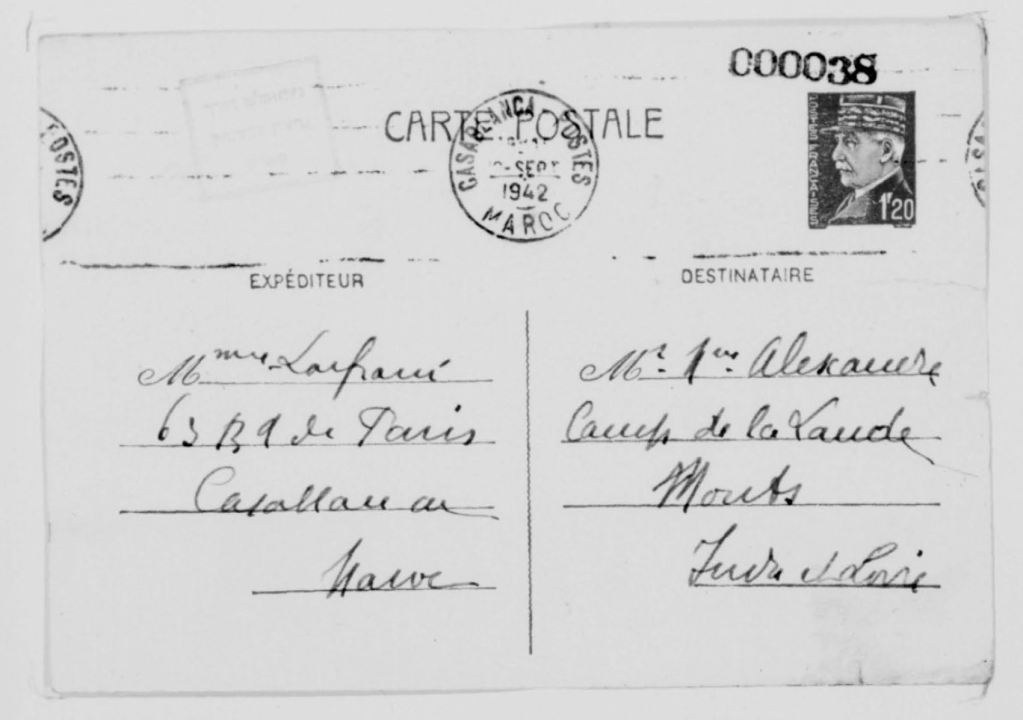 000038
CARTE POSTALE
CASABLANCA POSTES
SEPT
1942
MAROC
POSTES
POSTES FRANÇAISES
1F20
EXPÉDITEUR
DESTINATAIRE
Mme
63 Bd de Paris
Casablanca
Maroc
Mr. Alexandre
Camp de la Lande
Monts
Indre et Loire